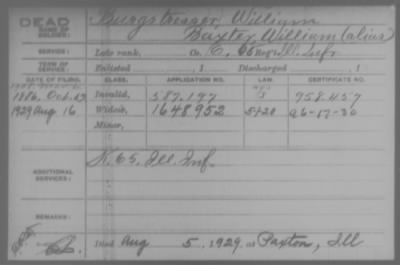 DEAD Burgstresser, William
NAME OF SOLDIER: Baxter, William (alias)
SERVICE: Late rank, Co. C, 65 Reg't Ill. Inf.
TERM OF SERVICE: Enlisted , 1 Discharged , 1
DATE OF FILING. CLASS. APPLICATION NO. LAW. CERTIFICATE NO.
1886, Oct. Invalid, 587.197 958.457
1929 Aug 16 Widow, 1648952 5-1-20 a6-17-30
Minor,
K. 65, Ill. Inf.
ADDITIONAL SERVICES:
REMARKS:
Died Aug 5, 1929, at Paxton, Ill